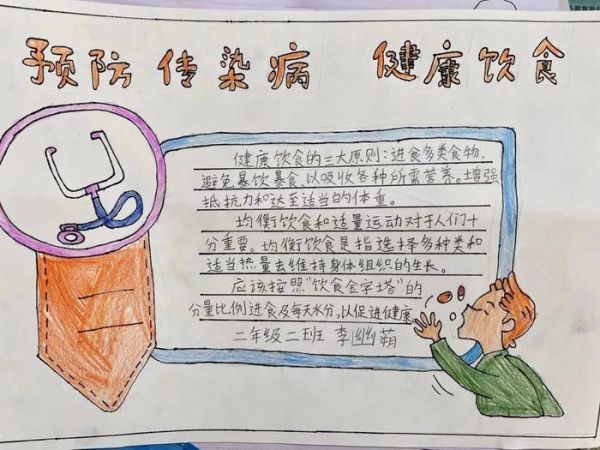 预防传染病 健康饮食
健康饮食的三大原则:进食多类食物、
避免暴饮暴食、以吸收各种所需营养。增强
抵抗力和达至适当的体重。
均衡饮食和适量运动对于人们十
分重要。均衡饮食是指选择多种类和
适当热量去维持身体组织的生长。
应该按照"饮食金字塔"的
分量比例进食及每天水分,以促进健康
二年级二班 李幽蒴